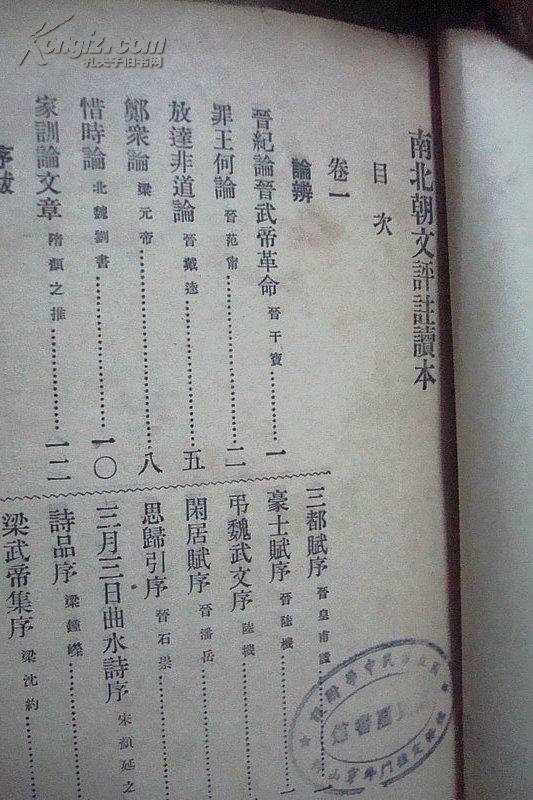 Kongfz.com
孔夫子旧书网
南北朝文評註讀本
目次
卷一
論辨
晉紀論晉武帝革命 晉干寶 一
罪王何論 晉范甯 二
放達非道論 晉戴逵 五
鄭衆論 梁元帝 八
惜時論 北魏劉晝 一〇
家訓論文章 隋顏之推 一二
序跋
三都賦序 晉皇甫謐
豪士賦序 晉陸機
弔魏武文序 陸機
閑居賦序 晉潘岳
思歸引序 晉石崇
三月三日曲水詩序 宋顏延之
詩品序 梁鍾嶸
梁武帝集序 梁沈約